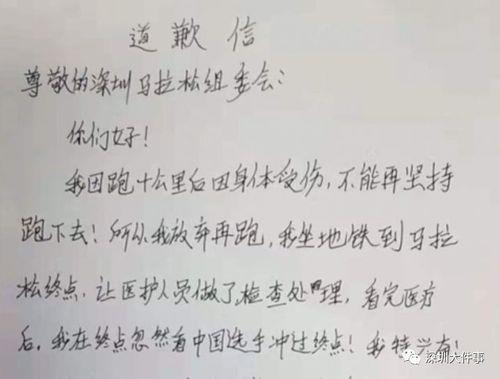 道歉信
尊敬的深圳马拉松组委会：
你们好！
我因跑十公里后因身体受伤，不能再坚持
跑下去！所以我放弃再跑，我坐地铁到马拉
松终点，让医护人员做了检查处理，看完医疗
后，我在终点忽然看中国选手冲过终点！我特兴奋！
深圳大件事